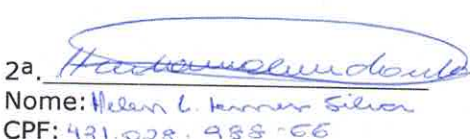 2a.
Nome: Helen L. Silva
CPF: 431.028.988-66